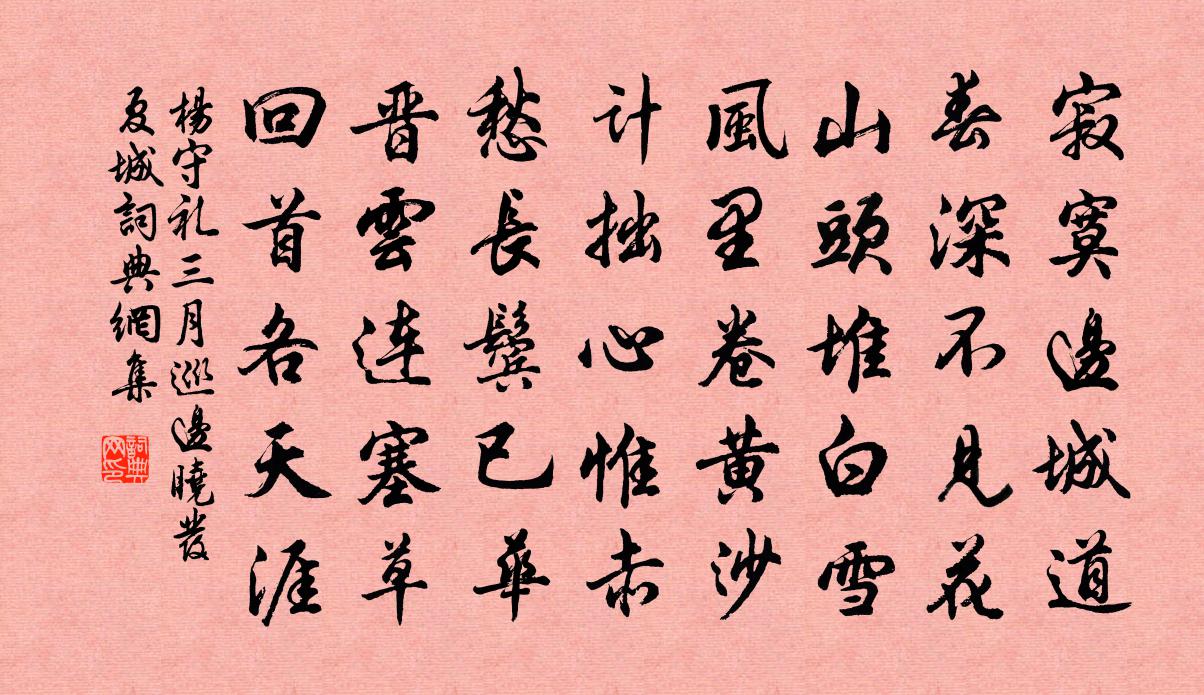 寂寞邊城道
春深不見花
山頭堆白雪
風里卷黄沙
计拙心惟赤
愁長鬓已華
晋雲連塞草
回首各天涯
楊守礼三月巡邊曉發
夏城詞典網集
詞典网印